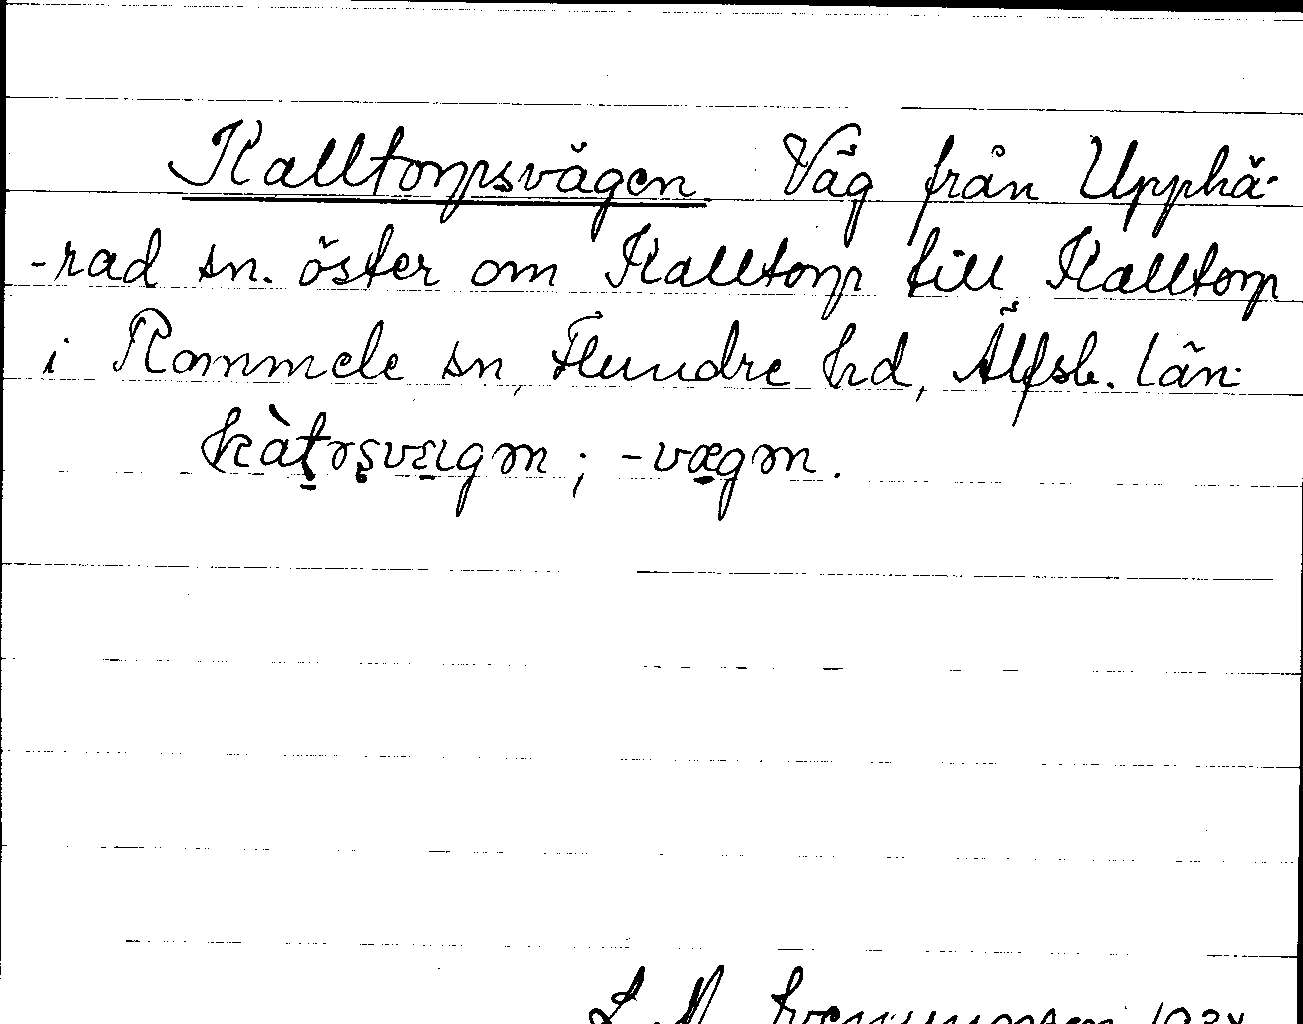 Kalltorpsvägen Väg från Upphä-
-rad sn. öster om Kalltorp till Kalltorp
i Rommele sn, Flundre hd, Älfsb. län.
; -vægən.